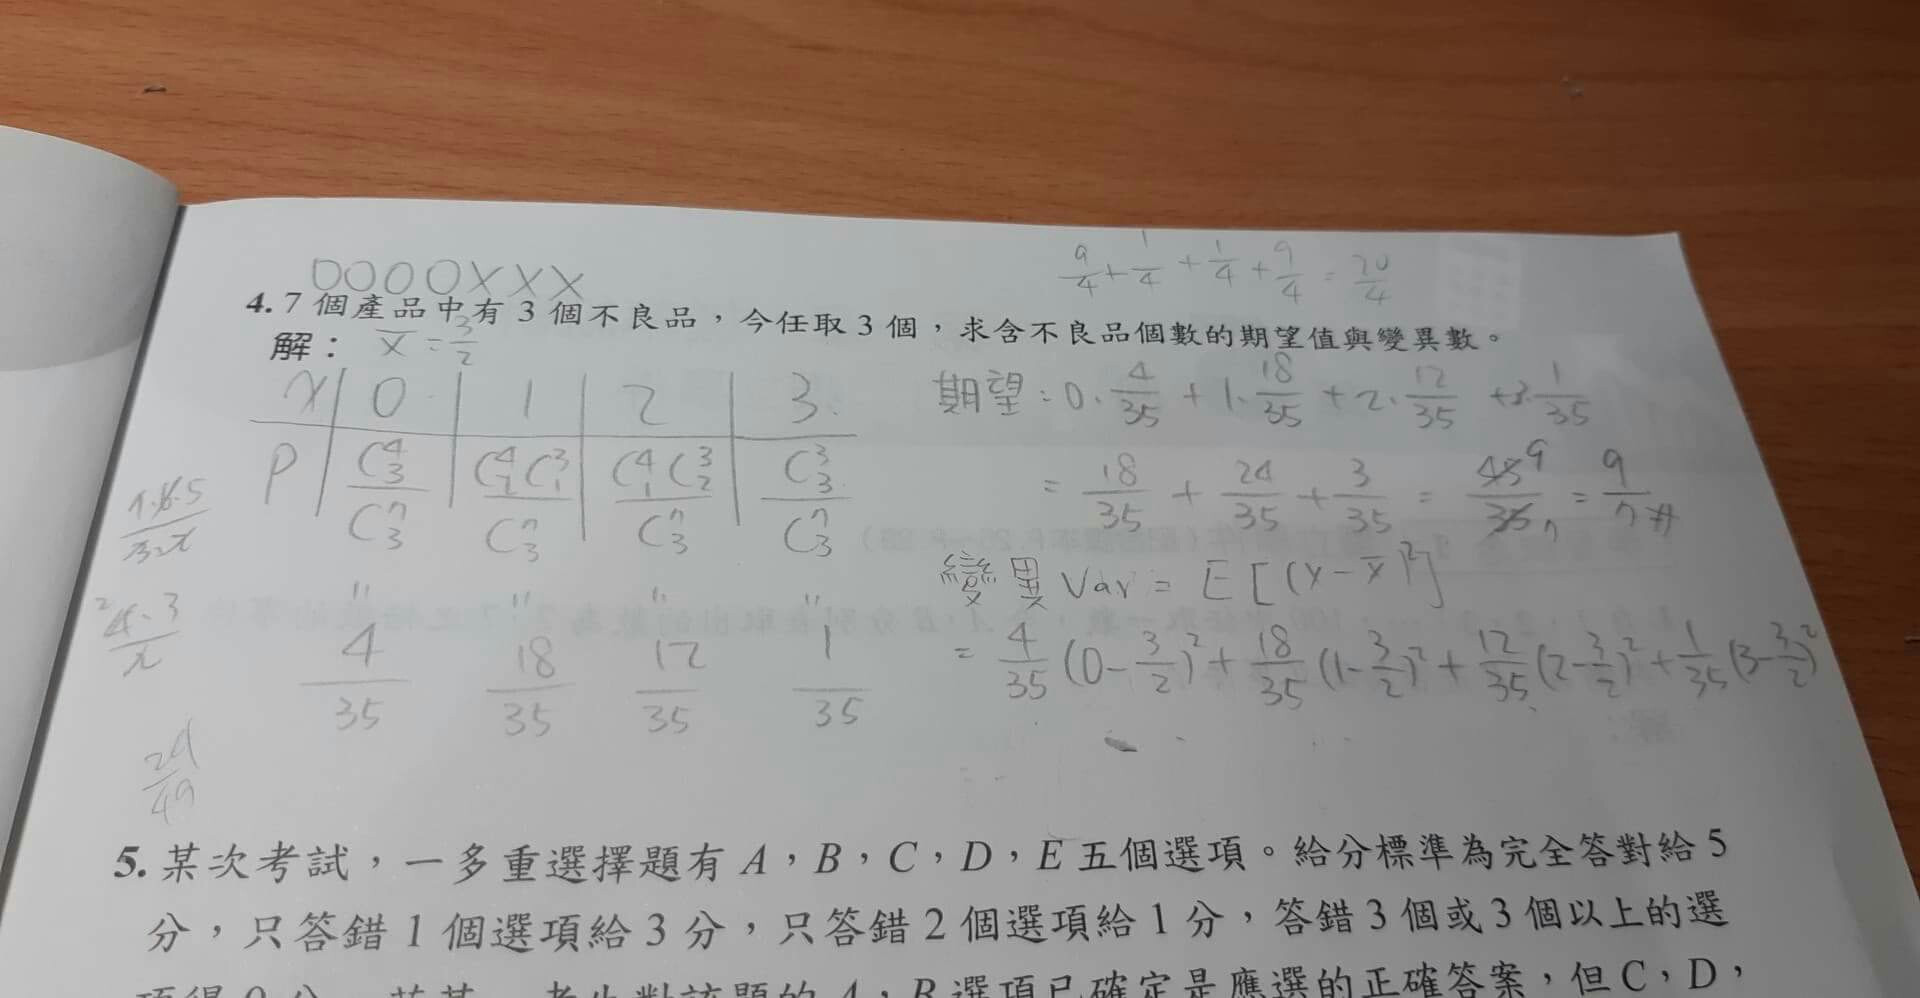 9/4 + 1/4 + 1/4 + 9/4 = 20/4
OOOOXXX
4. 7 個產品中有 3 個不良品，今任取 3 個，求含不良品個數的期望值與變異數。
解： x̄ = 3/2
x | 0 | 1 | 2 | 3
P | C⁴₃/C⁷₃ | C⁴₂C³₁/C⁷₃ | C⁴₁C³₂/C⁷₃ | C³₃/C⁷₃
" " " "
4/35 18/35 12/35 1/35
7·6·5/3·2
4·3/2
24/49
期望：0·4/35 + 1·18/35 + 2·12/35 + 3·1/35
= 18/35 + 24/35 + 3/35 = 45/35 = 9/7 #
變異 Var = E[(x-x̄)²]
= 4/35(0-3/2)² + 18/35(1-3/2)² + 12/35(2-3/2)² + 1/35(3-3/2)²
5. 某次考試，一多重選擇題有 A，B，C，D，E 五個選項。給分標準為完全答對給 5
分，只答錯 1 個選項給 3 分，只答錯 2 個選項給 1 分，答錯 3 個或 3 個以上的選
項得 0 分。某考生對該題的 A，B 選項已確定是應選的正確答案，但 C，D，